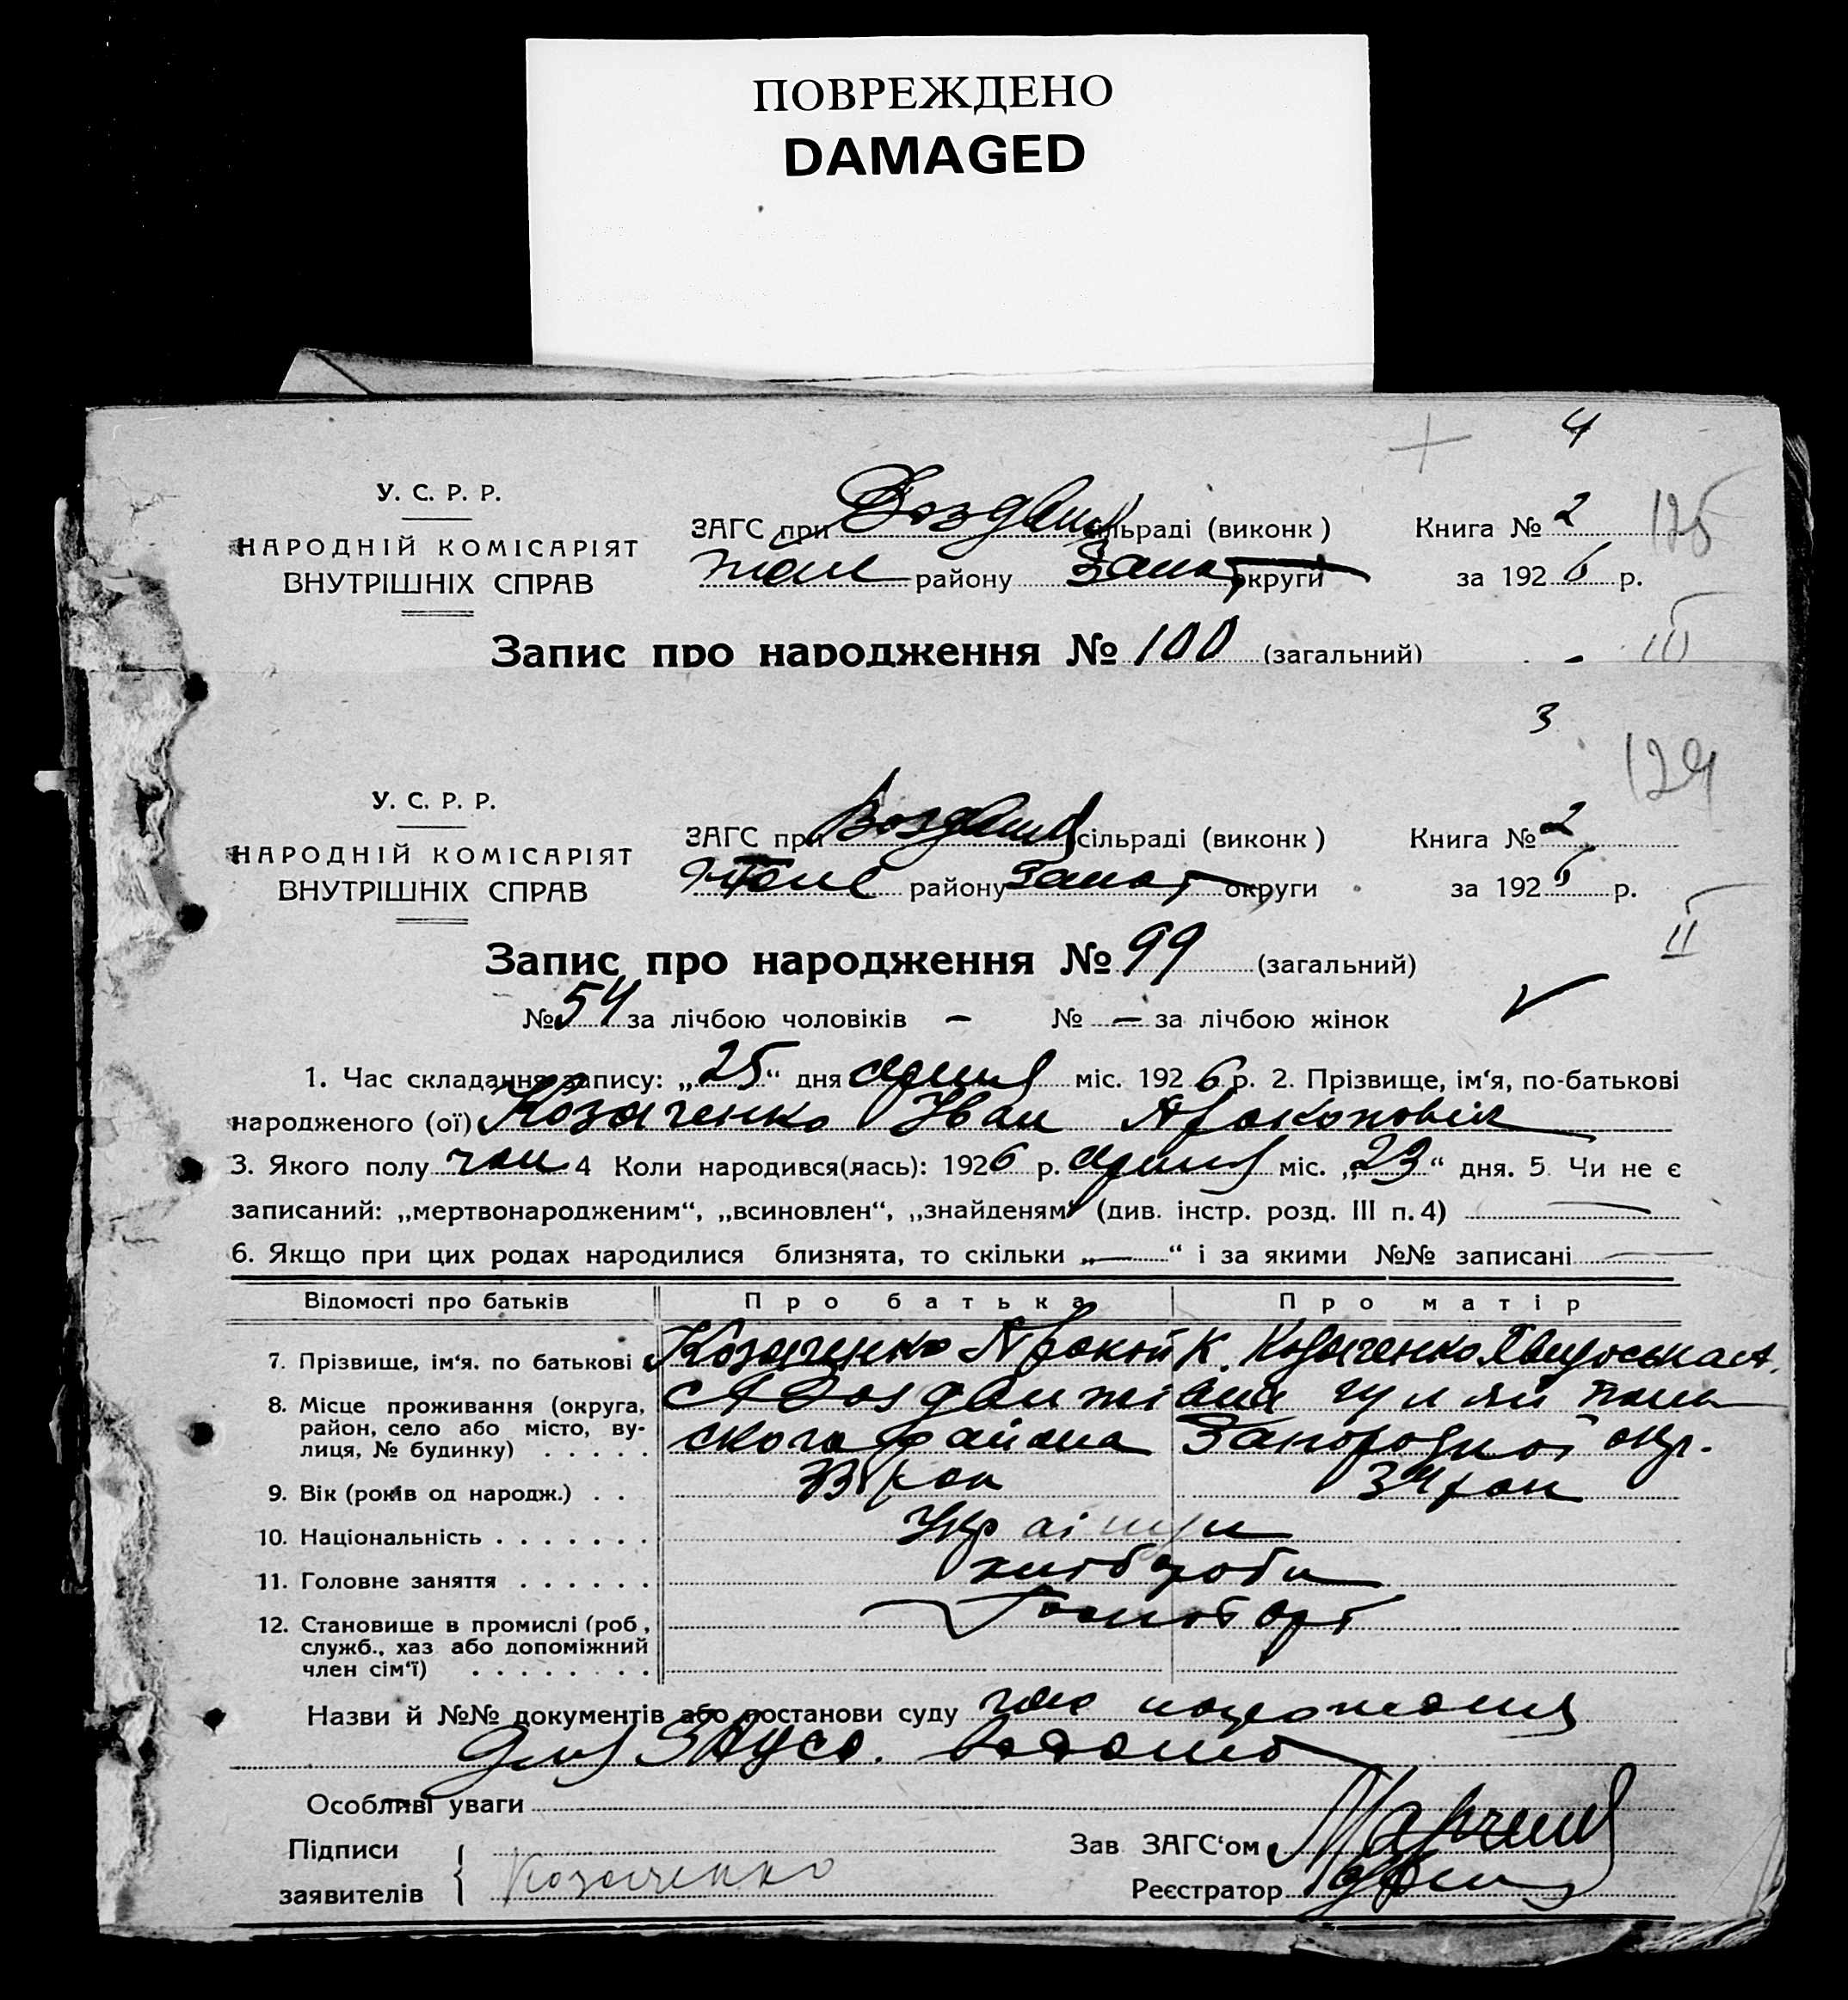 ПОВРЕЖДЕНО
DAMAGED
4
У. С. Р. Р.
НАРОДНІЙ КОМІСАРІЯТ
ВНУТРІШНІХ СПРАВ
ЗАГС при Воздвиж сільраді (виконк) Книга № 2 125
району Запор округи за 1926 р.
Запис про народження № 100 (загальний) III
3
124
У. С. Р. Р.
НАРОДНІЙ КОМІСАРІЯТ
ВНУТРІШНІХ СПРАВ
ЗАГС при Воздвиж сільраді (виконк) Книга № 2
району Запор округи за 1926 р.
II
Запис про народження № 99 (загальний)
№ 54 за лічбою чоловіків — № — за лічбою жінок
1. Час складання запису: „25“ дня міс. 1926 р. 2. Прізвище, ім'я, по-батькові
народженого (ої) Козаченко Иван Прокопович
3. Якого полу чол 4 Коли народився(лась): 1926 р. міс. „23“ дня. 5. Чи не є
записаний: „мертвонародженим“, „всиновлен“, „знайденям“ (див. інстр. розд. III п. 4) —
6. Якщо при цих родах народилися близнята, то скільки „—“ і за якими №№ записані —
Відомості про батьків Про батька Про матір
7. Прізвище, ім'я, по батькові Козаченко Прокоп К. Козаченко
8. Місце проживання (округа,
район, село або місто, ву-
лиця, № будинку)
с Воздвижівка гуляй поль
ского района Запорожкої окр.
9. Вік (років од народж.) 33 рок 34 рок
10. Національність Українци
11. Головне заняття хлібороби
12. Становище в промислі (роб,
служб., хаз або допоміжний
член сім'ї)
Назви й №№ документів або постанови суду
Особливі уваги
Підписи
заявителів
Козаченко
Зав ЗАГС'ом
Реєстратор